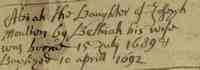 Abiah the Daughter of Joseph
Moulton by Bethiah his wife
was borne 15 July 1689
Baptized 10 april 1692